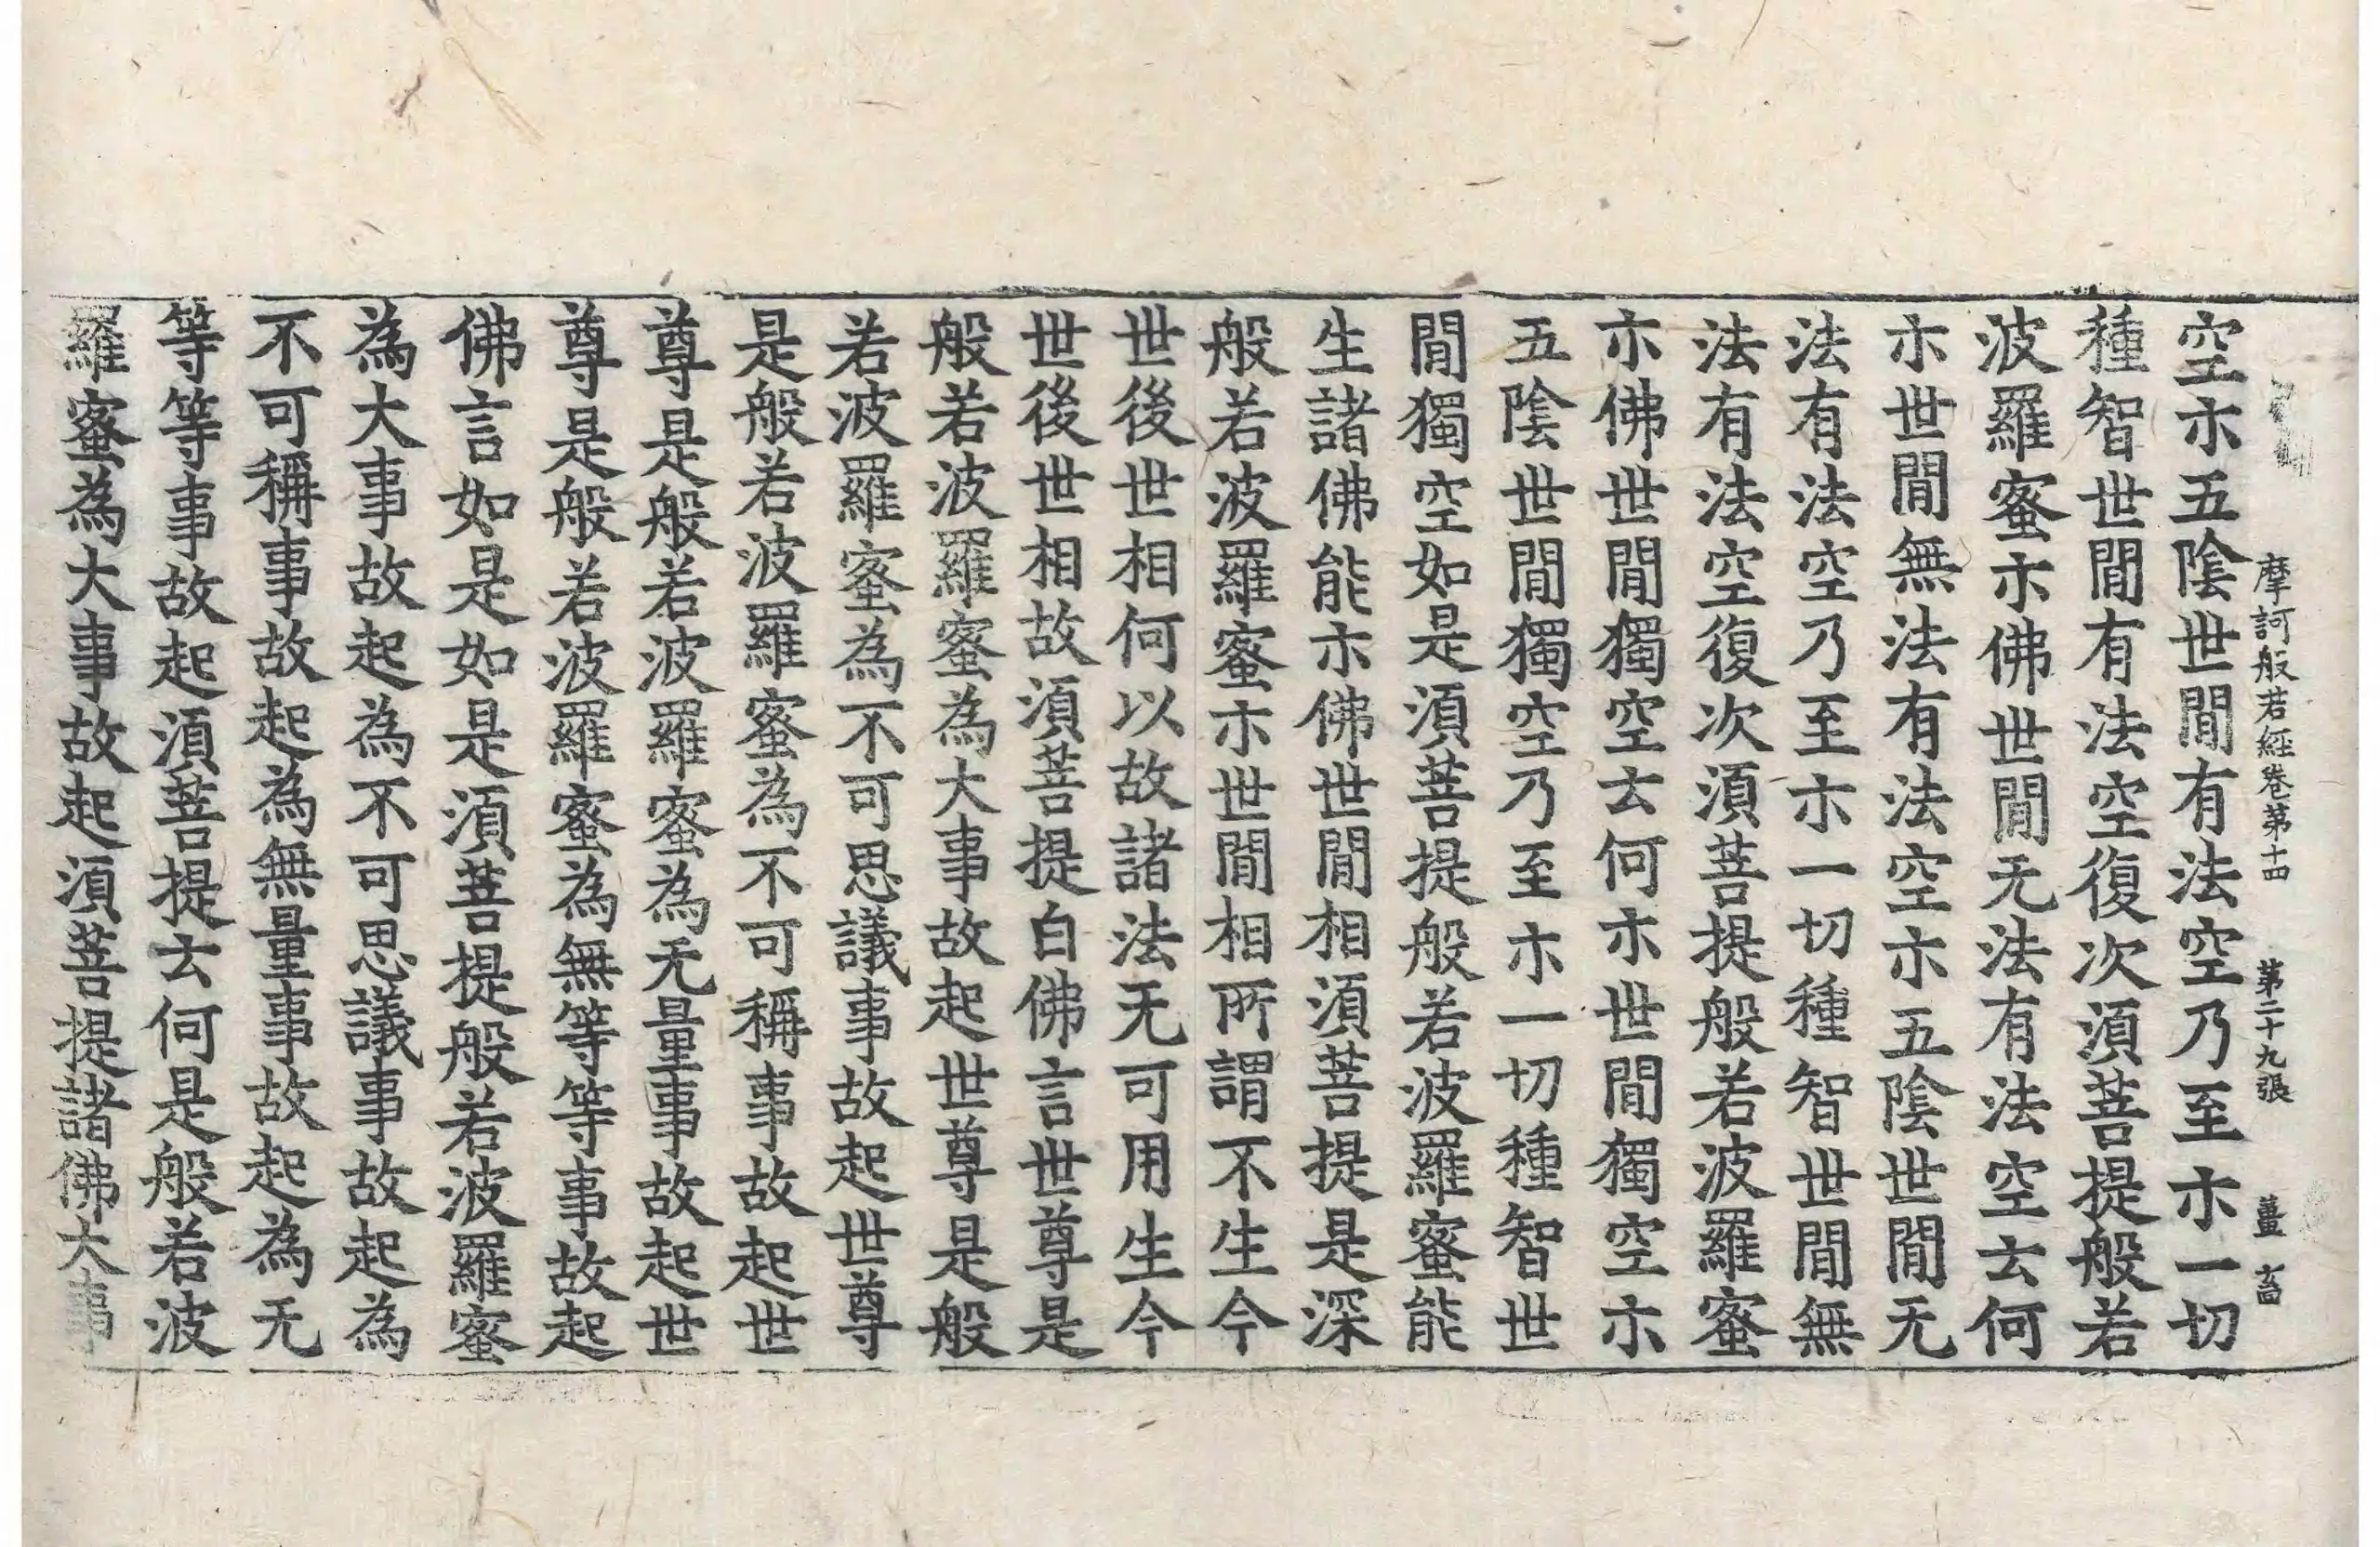 摩訶般若經卷第十四 第二十九張 薑
空示五陰世閒有法空乃至示一切
種智世閒有法空復次須菩提般若
波羅蜜示佛世閒无法有法空云何
示世閒無法有法空示五陰世閒无
法有法空乃至示一切種智世閒無
法有法空復次須菩提般若波羅蜜
示佛世閒獨空云何示世閒獨空示
五陰世閒獨空乃至示一切種智世
閒獨空如是須菩提般若波羅蜜能
生諸佛能示佛世閒相須菩提是深
般若波羅蜜示世閒相所謂不生今
世後世相何以故諸法无可用生今
世後世相故須菩提白佛言世尊是
般若波羅蜜為大事故起世尊是般
若波羅蜜為不可思議事故起世尊
是般若波羅蜜為不可稱事故起世
尊是般若波羅蜜為无量事故起世
尊是般若波羅蜜為無等等事故起
佛言如是如是須菩提般若波羅蜜
為大事故起為不可思議事故起為
不可稱事故起為無量事故起為无
等等事故起須菩提云何是般若波
羅蜜為大事故起須菩提諸佛大事